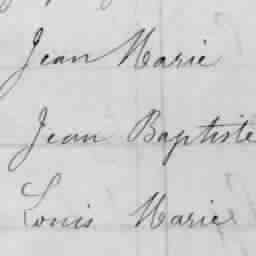 Jean Marie
Jean Baptiste
Louis Marie